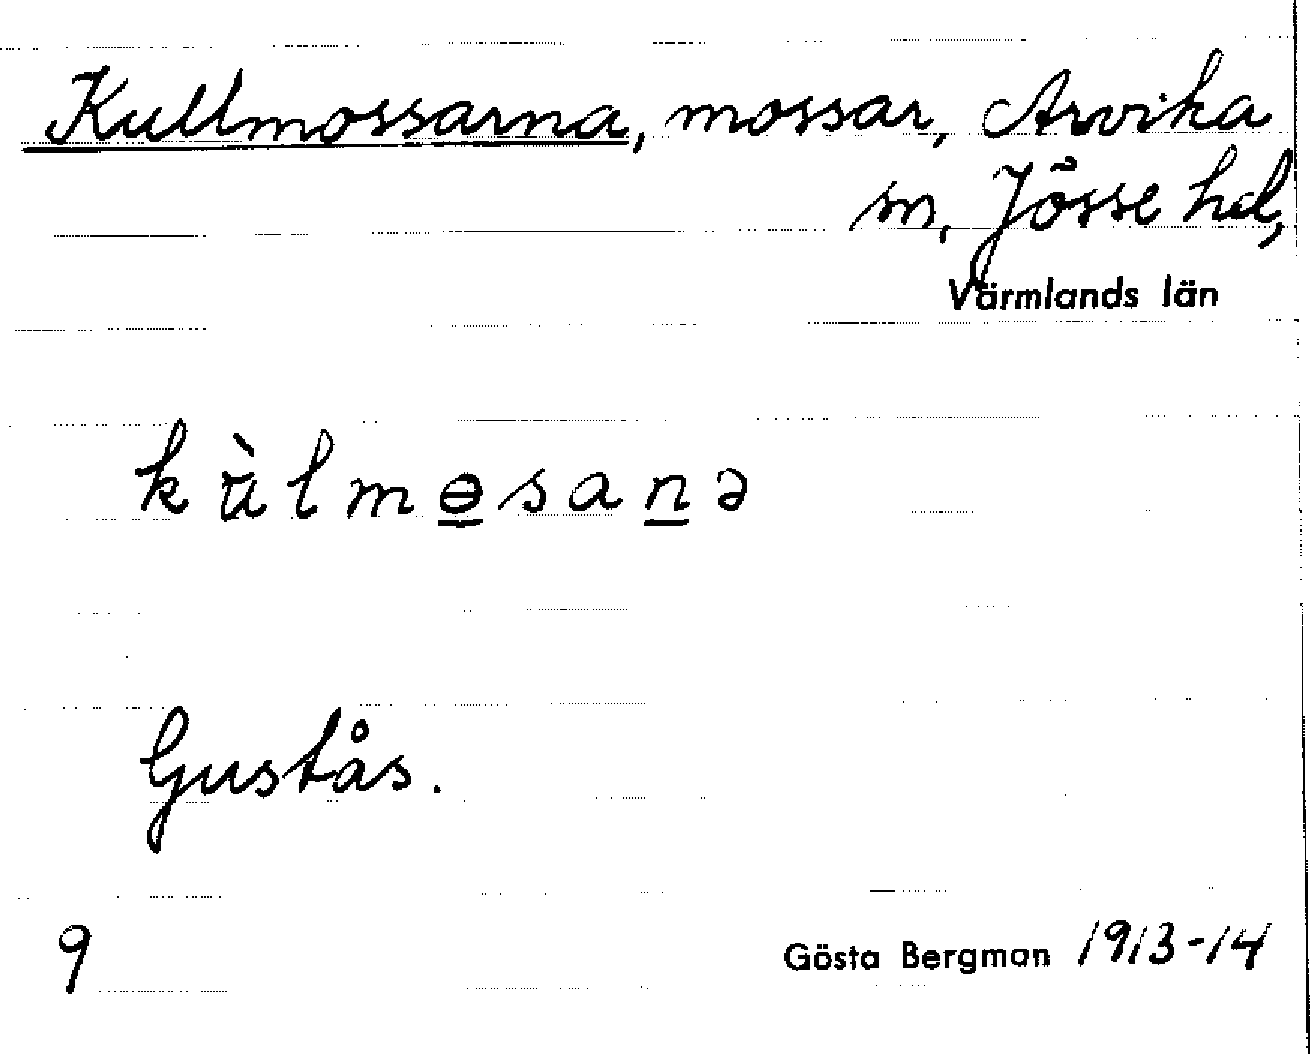 Kullmossarna, mossar, Arvika
sn, Jösse hd,
Värmlands län
kùlmɵsanə
Gustås.
9
Gösta Bergman 1913-14